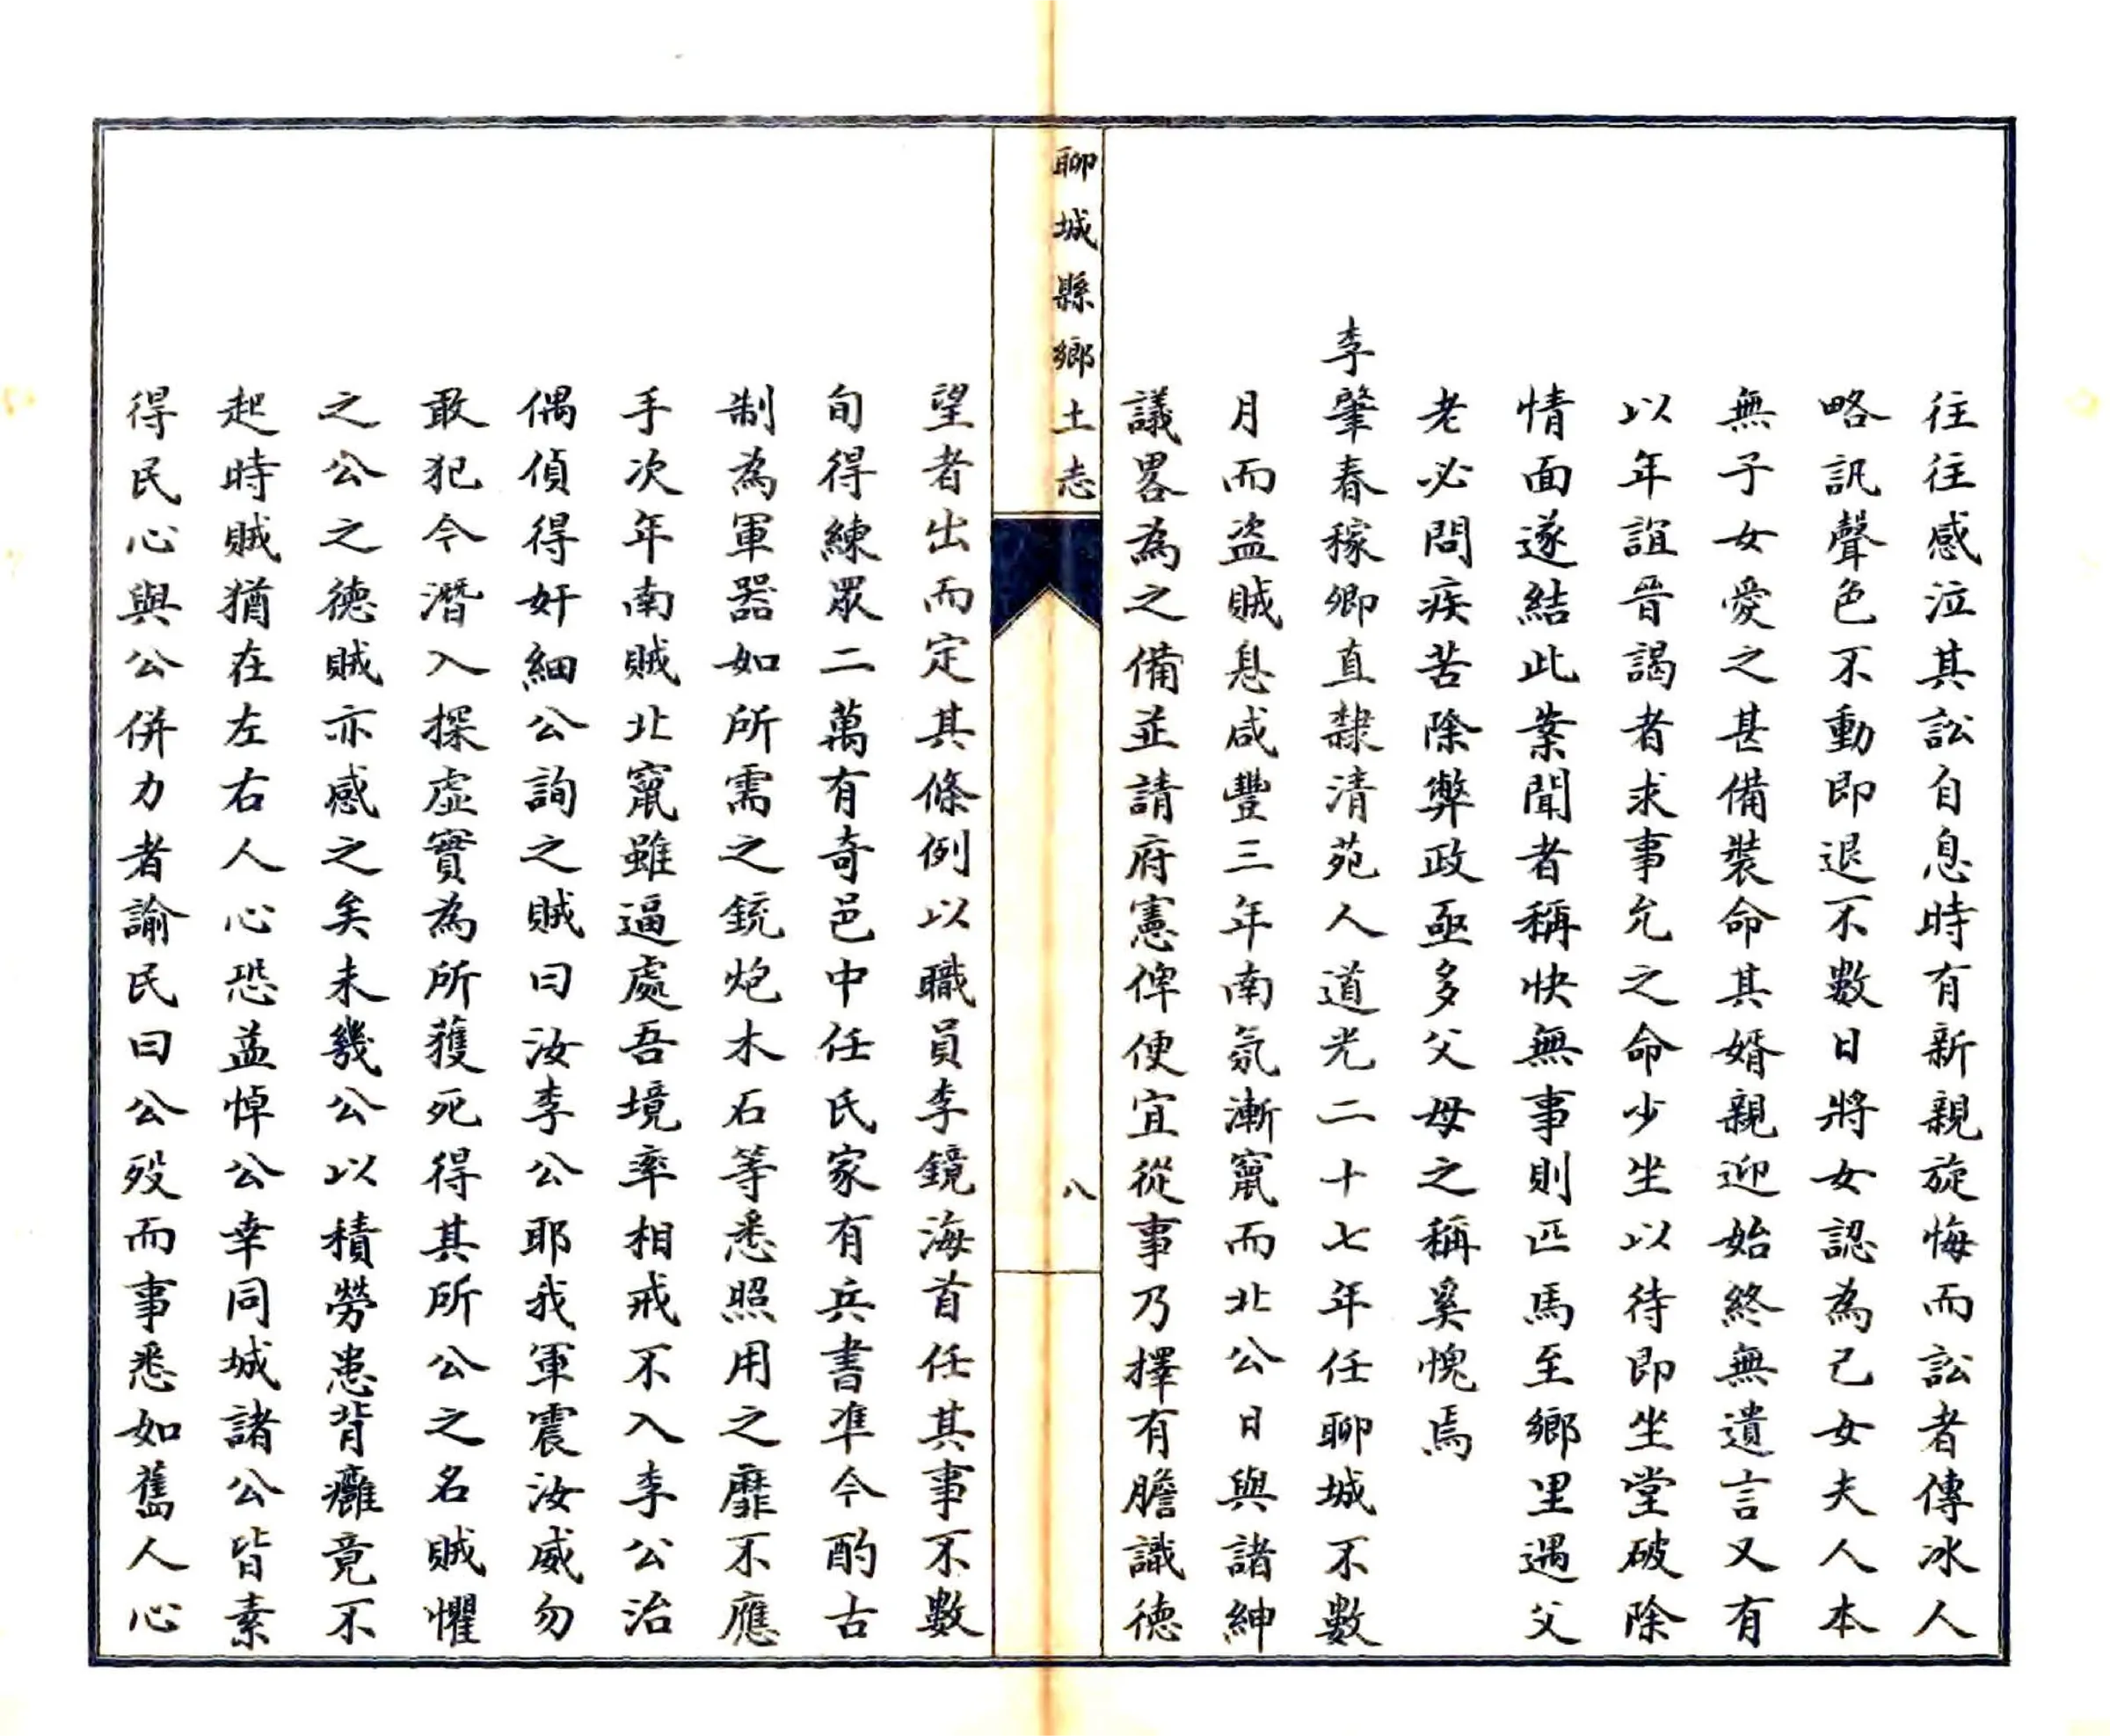 往往感泣其訟自息時有新親旋悔而訟者傳冰人
略訊聲色不動即退不數日將女認為己女夫人本
無子女愛之甚備裝命其婿親迎始終無遺言又有
以年誼晉謁者求事允之命少坐以待即坐堂破除
情面遂結此案聞者稱快無事則匹馬至鄉里遇父
老必問疾苦除弊政亟多父母之稱奚愧焉
李肇春稼卿直隸清苑人道光二十七年任聊城不數
月而盜賊息咸豐三年南氛漸竄而北公日與諸紳
議畧為之備並請府憲俾便宜從事乃擇有膽識德
聊城縣鄉土志
八
望者出而定其條例以職員李鏡海首任其事不數
旬得練眾二萬有奇邑中任氏家有兵書準今酌古
制為軍器如所需之銃炮木石等悉照用之靡不應
手次年南賊北竄雖逼處吾境率相戒不入李公治
偶偵得奸細公詢之賊曰汝李公耶我軍震汝威勿
敢犯今潛入探虛實為所獲死得其所公之名賊懼
之公之德賊亦感之矣未幾公以積勞患背癰竟不
起時賊猶在左右人心恐益悼公幸同城諸公皆素
得民心與公併力者諭民曰公歿而事悉如舊人心